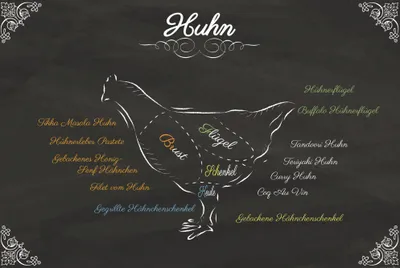 Huhn
Hühnerflügel
Buffalo Hühnerflügel
Tikka Masala Huhn
Hühnerleber Pastete
Gebackenes Honig-
Senf Hähnchen
Filet vom Huhn
Gegrillte Hähnchenschenkel
Brust
Flügel
Schenkel
Keule
Tandoori Huhn
Teriyaki Huhn
Curry Huhn
Coq Au Vin
Gebackene Hähnchenschenkel